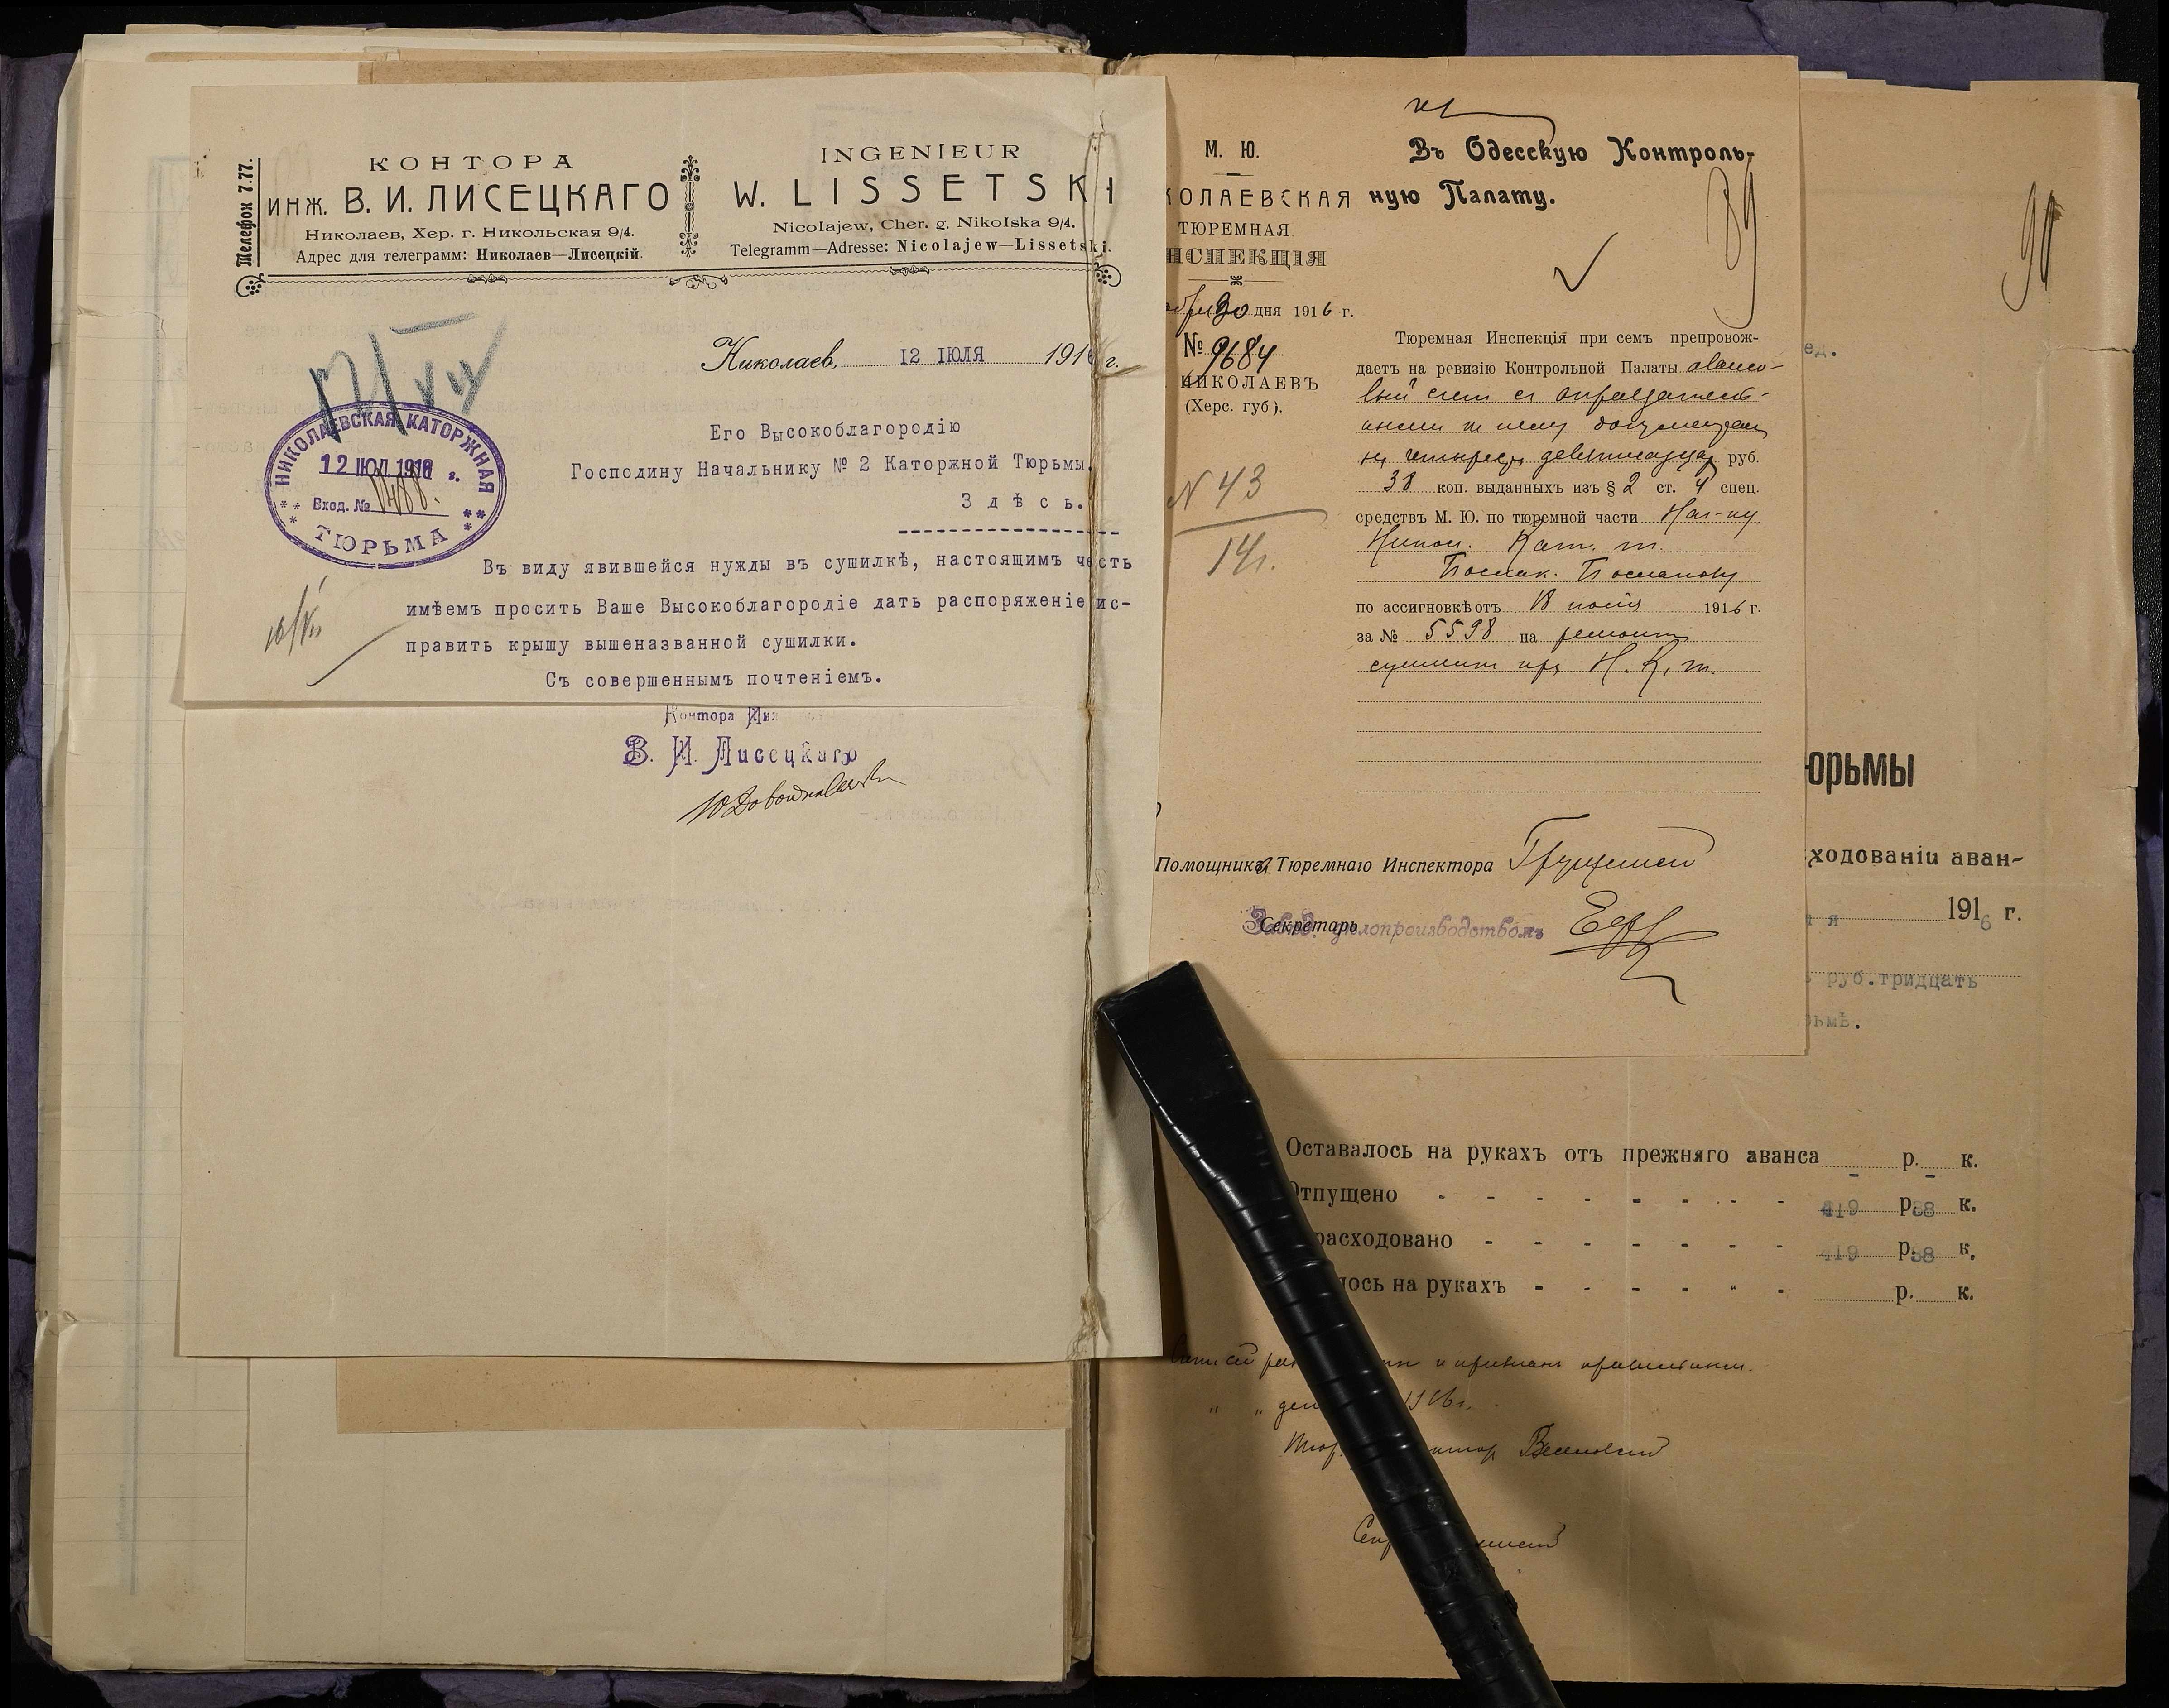 Телефон 7.77.
КОНТОРА
ИНЖ. В. И. ЛИСЕЦКАГО
Николаев, Хер. г. Никольская 9/4.
Адрес для телеграмм: Николаев—Лисецкій.
INGENIEUR
W. LISSETSKI
Nicolajew, Cher. g. Nikolska 9/4.
Telegramm—Adresse: Nicolajew—Lissetski.
12/VII
Николаев, 12 ІЮЛЯ 1916 г.
НИКОЛАЕВСКАЯ КАТОРЖНАЯ
12 ІЮЛ 1916 г.
Вход. №
ТЮРЬМА
Его Высокоблагородію
Господину Начальнику № 2 Каторжной Тюрьмы.
Здѣсь.
Въ виду явившейся нужды въ сушилкѣ, настоящимъ честь
имѣемъ просить Ваше Высокоблагородіе дать распоряженіе ис-
править крышу вышеназванной сушилки.
Съ совершеннымъ почтеніемъ.
16/VII
Контора Инж
В. И. Лисецкаго
М. Ю.
КОЛАЕВСКАЯ
ТЮРЕМНАЯ
НСПЕКЦІЯ
30 дня 1916 г.
№ 9684
НИКОЛАЕВЪ
(Херс. губ).
N 43
14г.
Въ Одесскую Контроль-
ную Палату.
89
Тюремная Инспекція при семъ препровож-
даетъ на ревизію Контрольной Палаты авансо-
вый счет с оправдатель-
ными к нему документам
на четыреста девятнадцать руб.
38 коп. выданныхъ изъ § 2 ст. 4 спец.
средствъ М. Ю. по тюремной части Нач-ку
Никол. Кат. т.
по ассигновкѣ отъ 18 1916 г.
за № 5598 на ремонт
сушилки при Н. К. т.
Помощникъ Тюремнаго Инспектора
Секретарь
Завѣд. дѣлопроизводствомъ
90
ед.
юрьмы
ходованіи аван-
я 1916 г.
руб.тридцать
ьмѣ.
Оставалось на рукахъ отъ прежняго аванса - р. - к.
Отпущено - - - - - - - - 419 р. 38 к.
расходовано - - - - - - - 419 р. 38 к.
лось на рукахъ - - - - - - р. к.
и признан правильным.
1916 г.